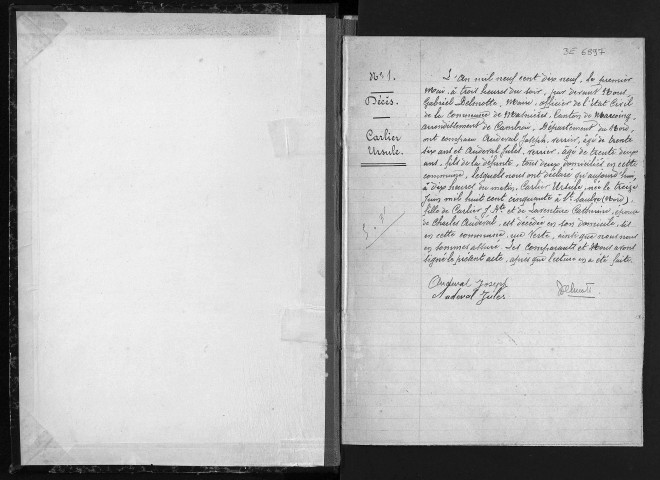 3E 6997
N° 1.
Décès.
Carlier
Ursule.
L'An mil neuf cent dix neuf, le premier
Mai, à trois heures du soir, par devant Nous
Gabriel Delmotte, Maire, officier de l'Etat Civil
de la Commune de Masnières, Canton de Marcoing,
arrondissement de Cambrai, Département du Nord,
ont comparu Auderval Joseph, verrier, âgé de trente
six ans et Auderval Jules, verrier, âgé de trente deux
ans, fils de la défunte, tous deux domiciliés en cette
commune, lesquels nous ont déclaré qu'aujourd'hui,
à dix heures du matin, Carlier Ursule, née le treize
Juin mil huit cent cinquante à St Saulve (Nord),
fille de Carlier J. Bte et de Laventure Catherine, épouse
de Charles Auderval, est décédée en son domicile, sis
en cette commune, rue Verte, ainsi que nous nous
en sommes assuré. Les Comparants et Nous avons
signé le présent acte, après que lecture en a été faite.
Auderval Joseph
Auderval Jules